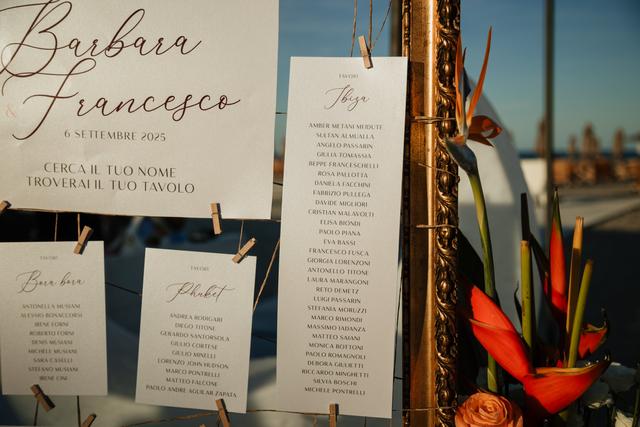 Barbara
& Francesco
6 SETTEMBRE 2025
CERCA IL TUO NOME
TROVERAI IL TUO TAVOLO
TAVOLO
Ibiza
AMBER METANI MEIDUTE
SULTAN ALMUALLA
ANGELO PASSARIN
GIULIA TOMASSIA
BEPPE FRANCESCHELLI
ROSA PALLOTTA
DANIELA FACCHINI
FABRIZIO PULLEGA
DAVIDE MIGLIORI
CRISTIAN MALAVOLTI
ELISA BIONDI
PAOLO PIANA
EVA BASSI
FRANCESCO FUSCA
GIORGIA LORENZONI
ANTONELLO TITONE
LAURA MARANGONI
RETO DEMETZ
LUIGI PASSARIN
STEFANIA MORUZZI
MARCO RIMONDI
MASSIMO IADANZA
MATTEO SAIANI
MONICA BOTTONI
PAOLO ROMAGNOLI
DEBORA GIULIETTI
RICCARDO MINGHETTI
SILVIA BOSCHI
MICHELE PONTRELLI
TAVOLO
Bora bora
ANTONELLA MUSIANI
ALESSIO BONACCORSI
IRENE FORNI
ROBERTO FORNI
DENIS MUSIANI
MICHELE MUSIANI
SARA CASELLI
STEFANO MUSIANI
IRENE CINI
TAVOLO
Phuket
ANDREA RODIGARI
DIEGO TITONE
GERARDO SANTORSOLA
GIULIO CORTESE
GIULIO MINELLI
LORENZO JOHN HUDSON
MARCO PONTRELLI
MATTEO FALCONE
PAOLO ANDRE AGUILAR ZAPATA